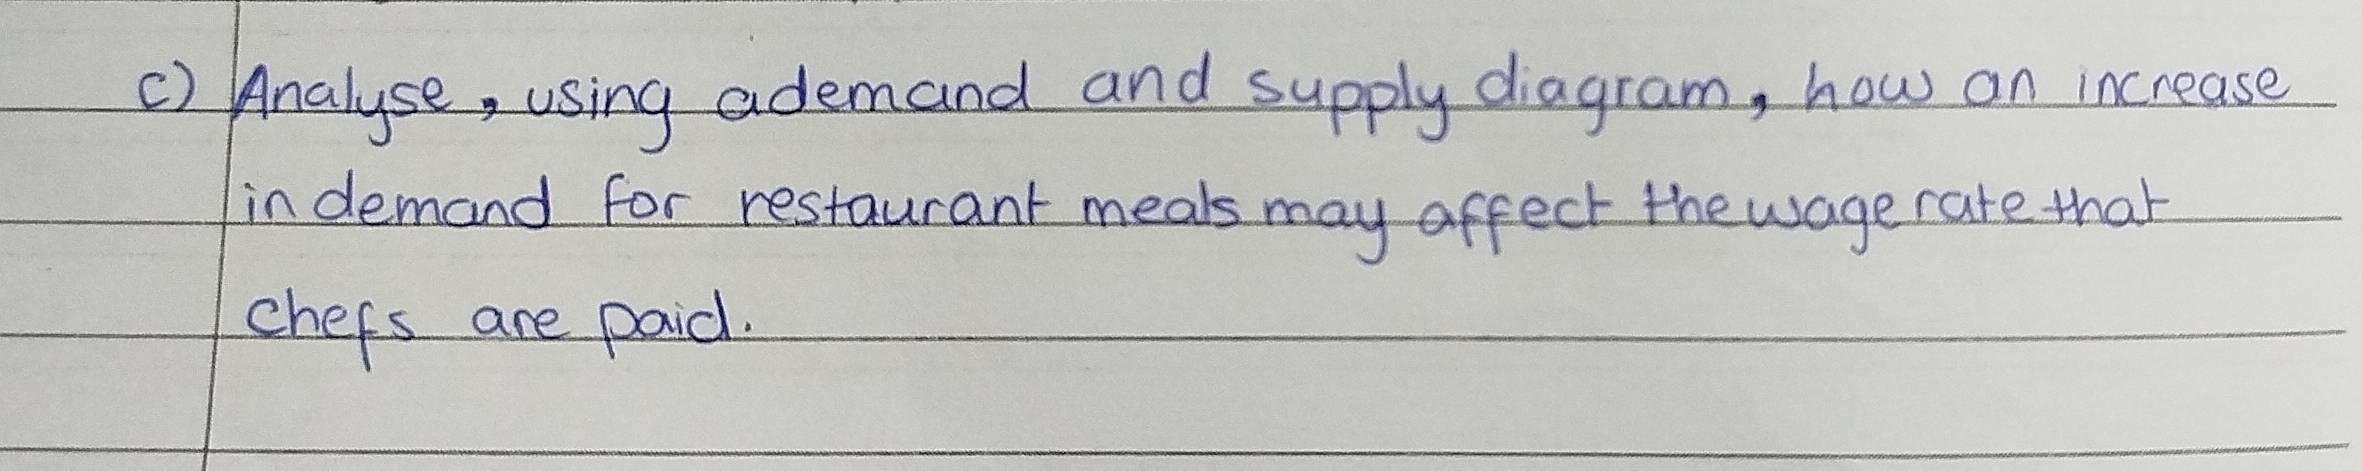 c) Analyse, using a demand and supply diagram, how an increase
in demand for restaurant meals may affect the wage rate that
chefs are paid.